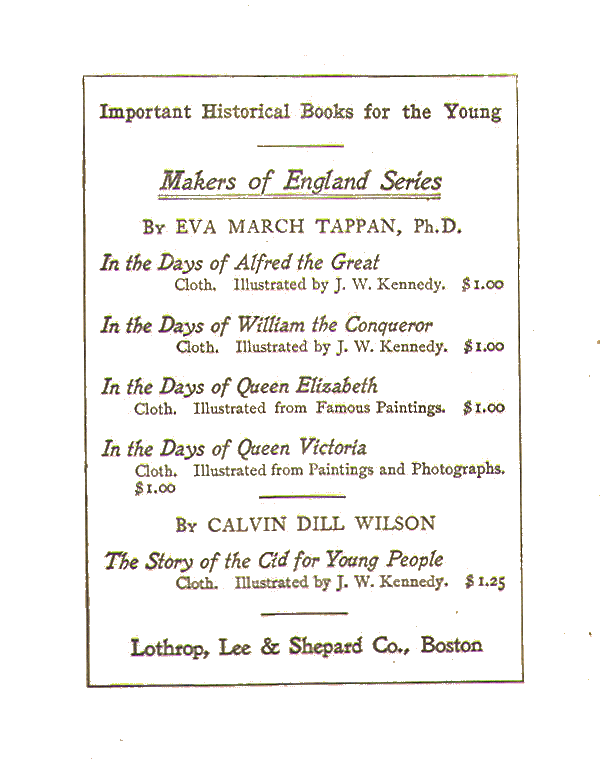 Important Historical Books for the Young
Makers of England Series
By EVA MARCH TAPPAN, Ph.D.
In the Days of Alfred the Great
Cloth. Illustrated by J. W. Kennedy. $1.00
In the Days of William the Conqueror
Cloth. Illustrated by J. W. Kennedy. $1.00
In the Days of Queen Elizabeth
Cloth. Illustrated from Famous Paintings. $1.00
In the Days of Queen Victoria
Cloth. Illustrated from Paintings and Photographs.
$1.00
By CALVIN DILL WILSON
The Story of the Cid for Young People
Cloth. Illustrated by J. W. Kennedy. $1.25
Lothrop, Lee & Shepard Co., Boston